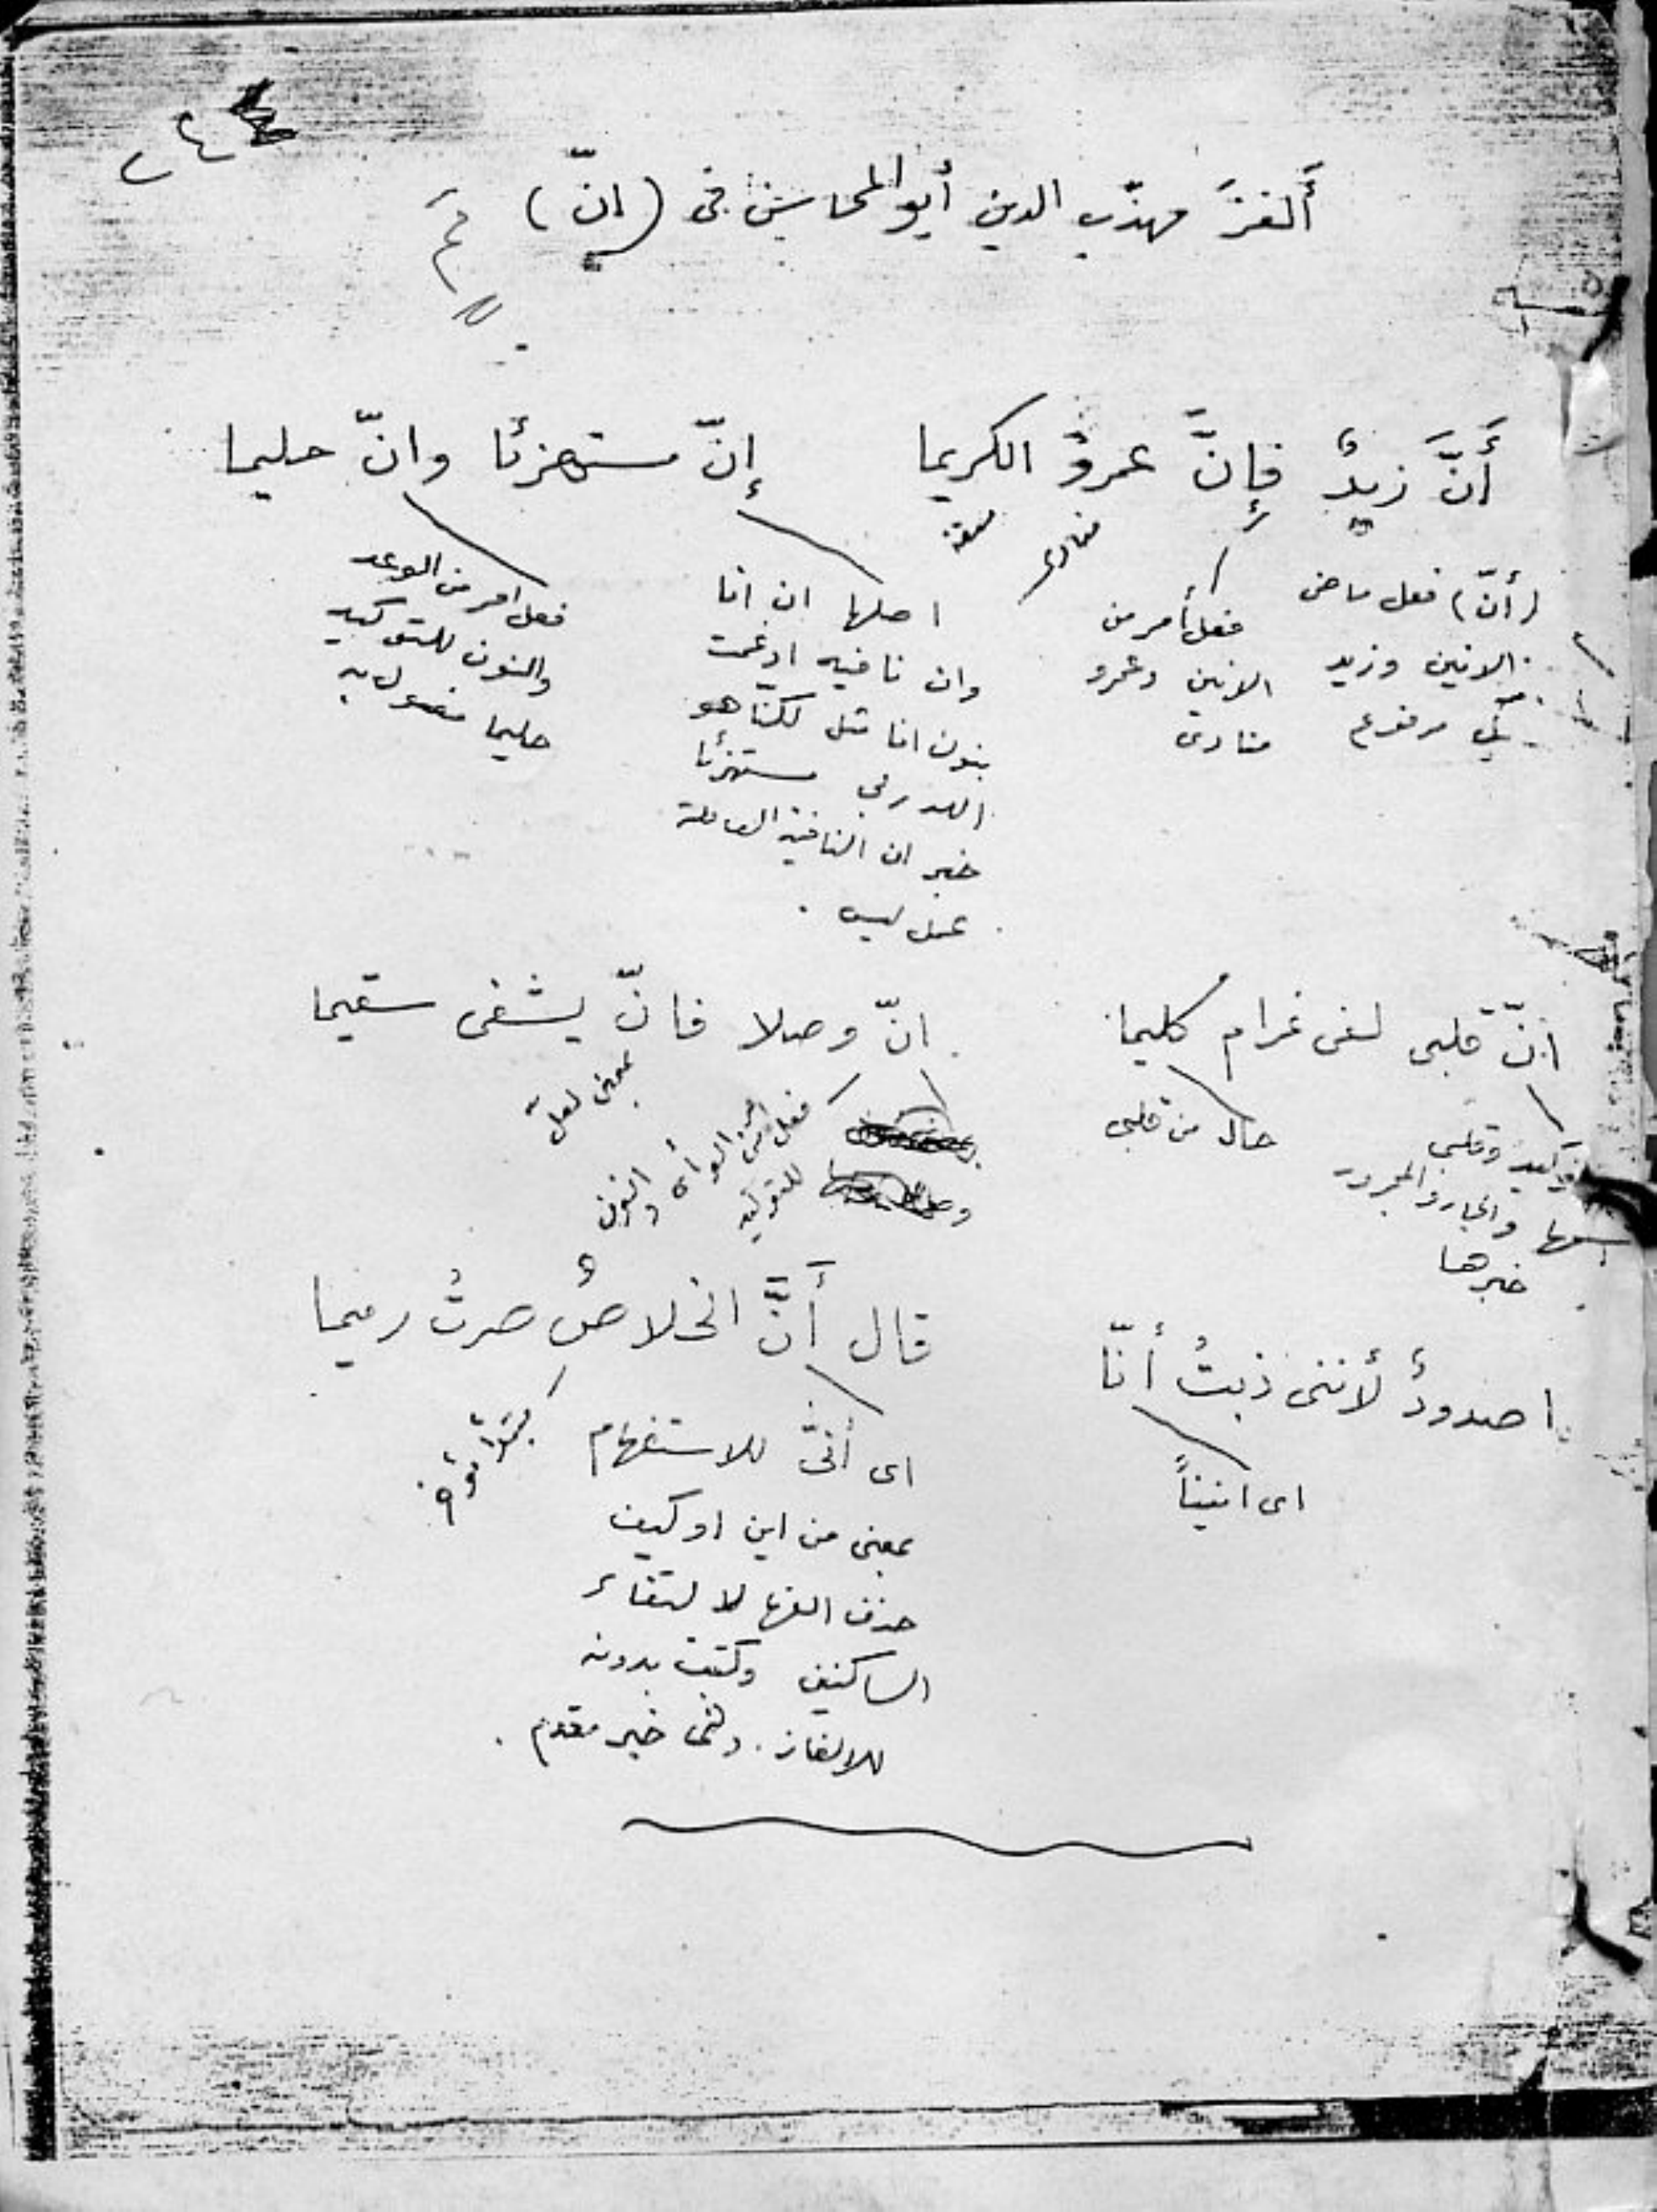 ٢٤
أَلغزَ مهذّب الدين أبو المحاسن في (إنّ)
أَنَّ زيدٌ فإِنَّ عمروُ الكريما إِنّ مستهزئا وانّ حليما
منادى صفة
(أنّ) فعل ماض
الانين وزيد
مرفوع
فعل أمر من
الانين وعمرو
منادى
اصلها ان انا
وان نافيه ادغمت
بنون انا مثل لكنّا هو
الله ربي مستهزئا
خبر ان النافية العاملة
عمل ليس .
فعل امر من الوعد
والنون للتوكيد
حليما مفعول به
انّ قلبى لفى غرام كليما انّ وصلا فانّ يشفى سقيما
توكيد وقلبى
اسمها والجار والمجرور
خبرها
حال من قلبى
فعل امر من الوأى والنون
للتوكيد
بمعنى لعلّ
اصدودٌ لأننى ذبتُ أنّا قال أَنَّ الخلاصُ صرتُ رميما
اى انيناً
اى أنّى للاستفهام
بمعنى من اين او كيف
حذف الفها لالتقاء
الساكنين وكتبت بدونه
للالغاز. خبر مقدم .